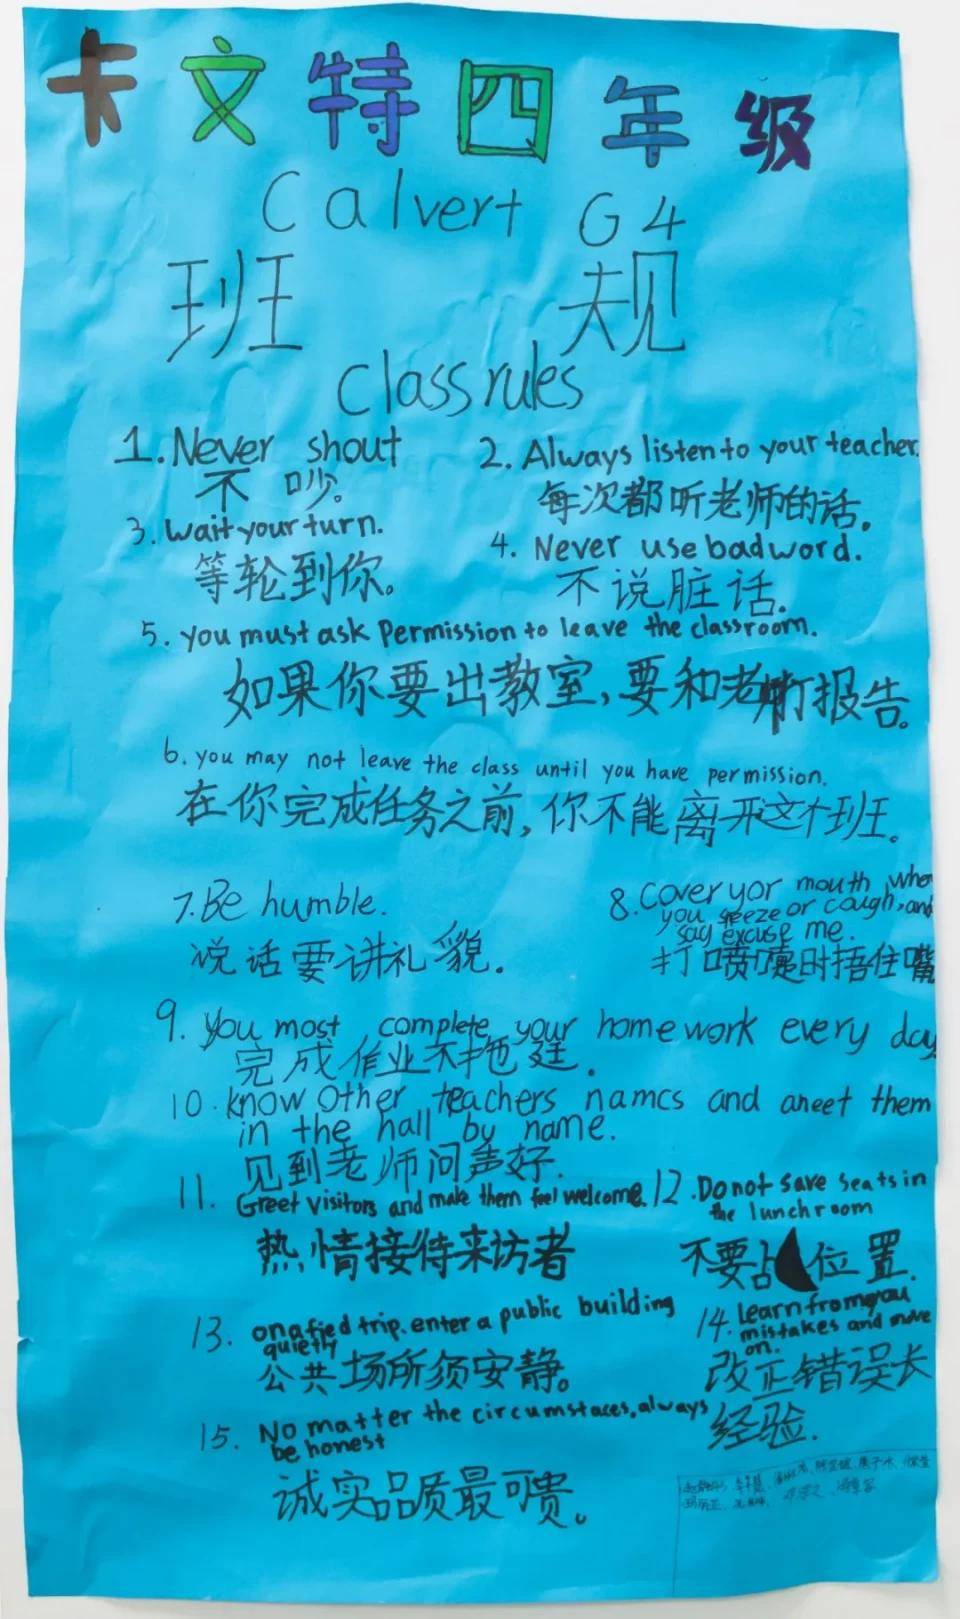 卡文特四年级
Calvert G4
班规
Class rules
1. Never shout
不吵。
2. Always listen to your teacher.
每次都听老师的话。
3. wait your turn.
等轮到你。
4. Never use bad word.
不说脏话.
5. you must ask Permission to leave the classroom.
如果你要出教室，要和老师报告。
6. you may not leave the class until you have permission.
在你完成任务之前，你不能离开这个班。
7. Be humble.
说话要讲礼貌.
8. Cover yor mouth, when
you speeze or cough, and
say excuse me.
打喷嚏时捂住嘴
9. You most complete your home work every day.
完成作业不拖延.
10. know other teachers names and aneet them
in the hall by name.
见到老师问声好.
11. Greet visitors and make them feel welcome.
热情接待来访者
12. Do not save seats in
the lunch room
不要占位置.
13. on a fied trip. enter a public building
quietly
公共场所须安静。
14. Learn from you
mistakes and move
on.
改正错误长
经验.
15. No matter the circumstaces, always
be honest
诚实品质最可贵。